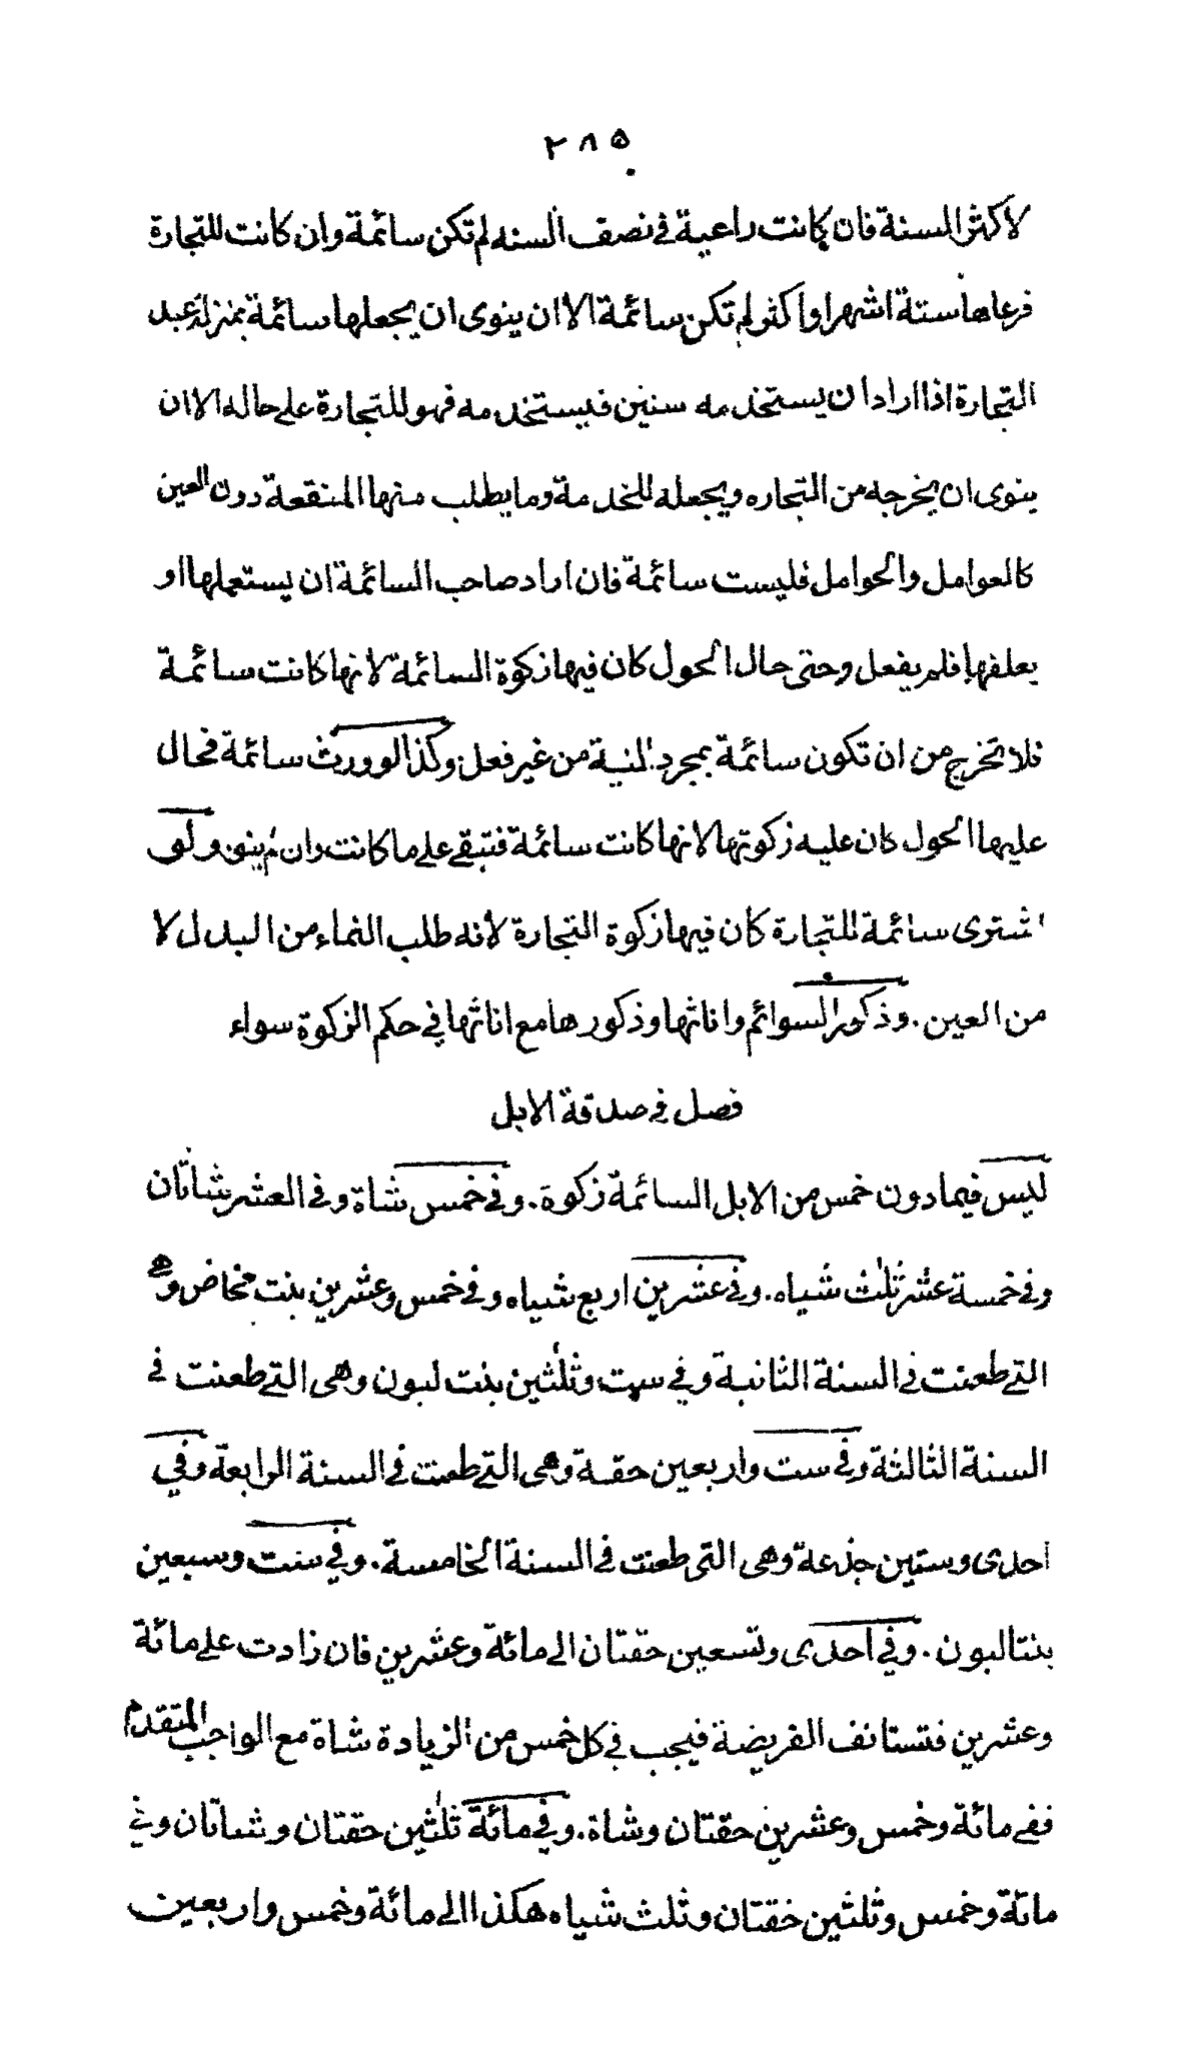 ٢٨٥
لاكثر السنة فان كانت راعية فى نصف السنه لم تكن سائمة وان كانت للتجارة
فرعاها ستة اشهر او اكثر لم تكن سائمة الا ان ينوى ان يجعلها سائمة بمنزلة عبد
التجارة اذا اراد ان يستخدمه سنين فيستخدمه فهو للتجارة على حاله الا ان
ينوى ان يخرجه من التجاره ويجعله للخدمة وما يطلب منها المنفعة دون العين
كالعوامل والحوامل فليست سائمة فان اراد صاحب السائمة ان يستعملها او
يعلفها فلم يفعل وحتى حال الحول كان فيها زكوة السائمة لانها كانت سائمة
فلا تخرج من ان تكون سائمة بمجرد النية من غير فعل وكذا لو ورث سائمة فحال
عليها الحول كان عليه زكوتها لانها كانت سائمة فتبقى على ما كانت وان لم ينو ولو
اشترى سائمة للتجارة كان فيها زكوة التجارة لأنه طلب النماء من البدل لا
من العين. وذكور السوائم واناثها وذكورها مع اناثها فى حكم الزكوة سواء
فصل فى صدقة الابل
ليس فيما دون خمس من الابل السائمة زكوة. وفى خمس شاة وفى العشر شاتان
وفى خمسة عشر ثلث شياه. وفى عشرين اربع شياه وفى خمس وعشرين بنت مخاض وهى
التى طعنت فى السنة الثانية وفى ست وثلثين بنت لبون وهى التى طعنت فى
السنة الثالثة وفى ست واربعين حقة وهى التى طعنت فى السنة الرابعة وفي
احدى وستين جذعة وهى التى طعنت فى السنة الخامسة. وفى ست وسبعين
بنتا لبون. وفى احدى وتسعين حقتان الى مائة وعشرين فان زادت على مائة
وعشرين فتستانف الفريضة فيجب فى كل خمس من الزيادة شاة مع الواجب المتقدم
ففى مائة وخمس وعشرين حقتان وشاة. وفى مائة ثلثين حقتان وشاتان وفى
مائة وخمس وثلثين حقتان وثلث شياه هكذا الى مائة وخمس واربعين